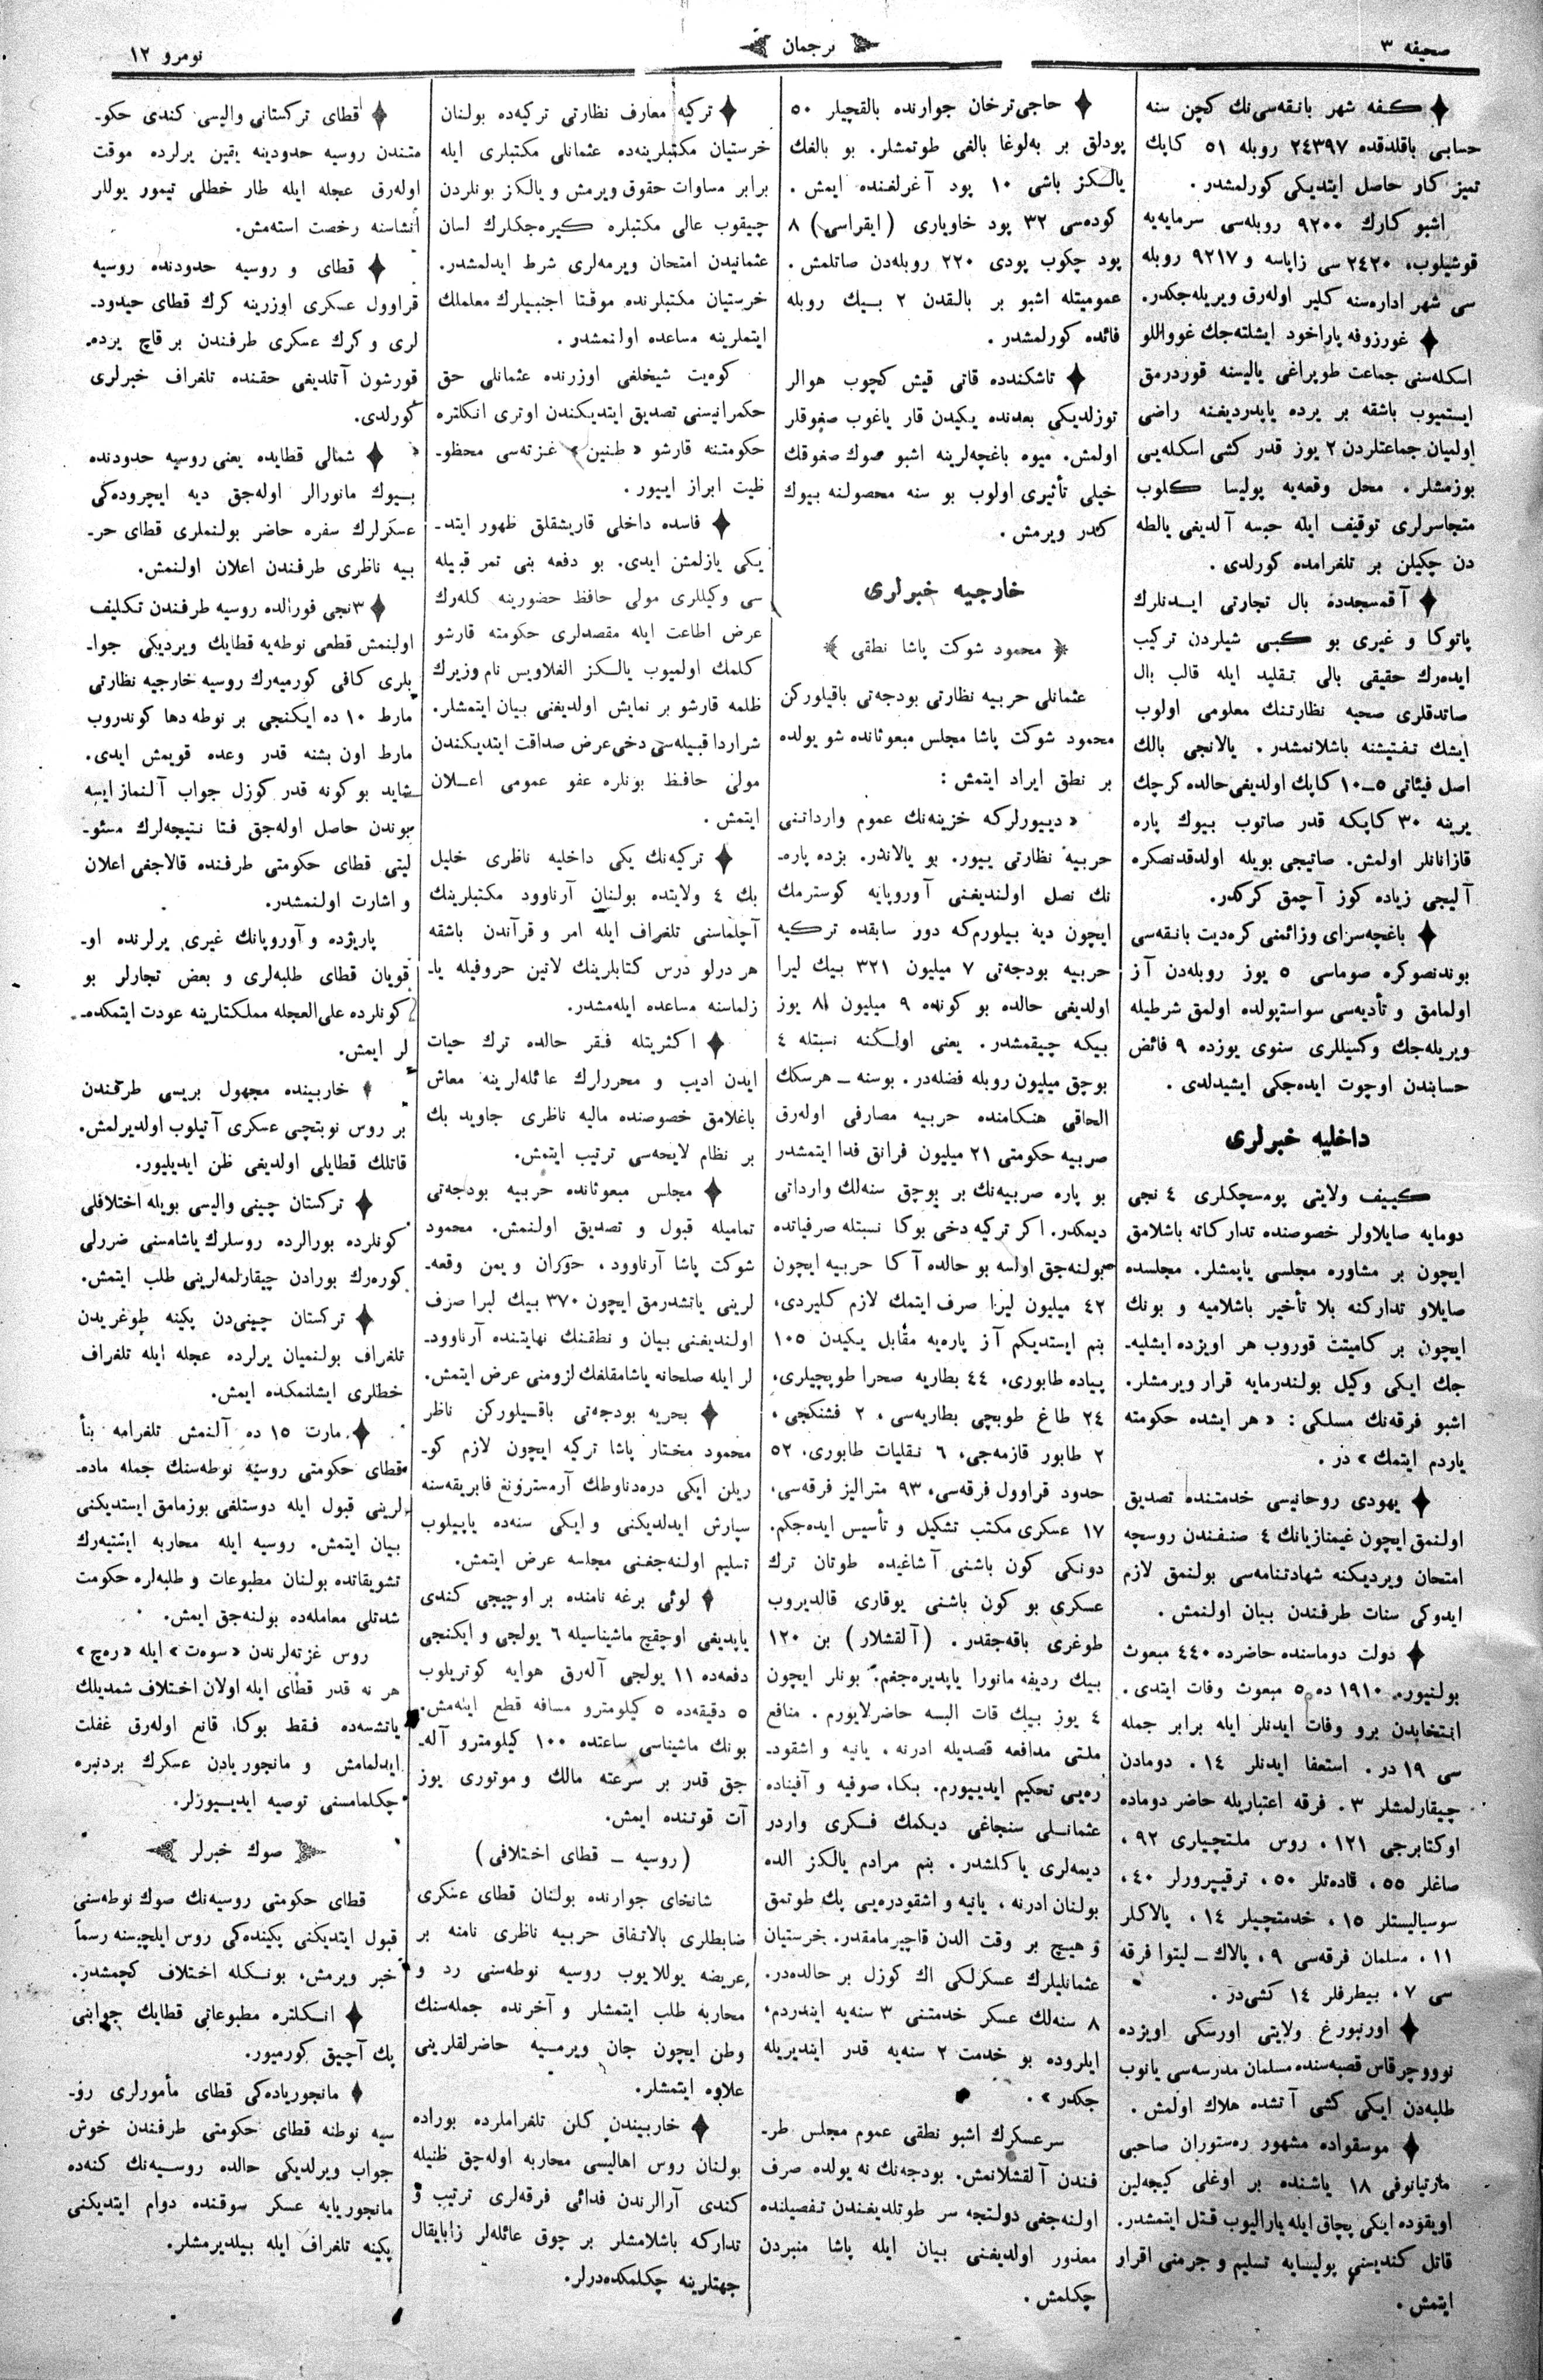 صحیفه ٣
ترجمان
نومرو ١٢
کفه شهر بانقه‌سی‌نك کچن سنه
حسابی باقلدقده ٢٤٣٩٧ روبله ٥١ کاپك
تمیز کار حاصل ایتدیکی کورلمشدر.
اشبو کارك ٩٢٠٠ روبله‌سی سرمایه‌یه
قوشیلوب، ٢٤٢٠ سی زاپاسه و ٩٢١٧ روبله
سی شهر اداره‌سنه کلیر اوله‌رق ویریله‌جکدر.
غورزوفه پاراخود ایشلته‌جك غوواللو
اسکله‌سنی جماعت طوپراغی یالیسنه قوردرمق
ایستمیوب باشقه بر یرده یاپدردیغنه راضی
اولمیان جماعتلردن ٢ یوز قدر کشی اسکله‌یی
بوزمشلر. محل وقعه‌یه پولیسا کلوب
متجاسرلری توقیف ایله حبسه آلدیغی یالطه
دن چکیلن بر تلغرامده کورلدی.
آقمسجدده بال تجارتی ایدنلرك
پاتوکا و غیری بو کبی شیلردن ترکیب
ایده‌رك حقیقی بالی تقلید ایله قالب بال
صاتدقلری صحیه نظارتنك معلومی اولوب
ایشك تفتیشنه باشلانمشدر. یالانجی بالك
اصل فیئاتی ٥ــ١٠ کاپك اولدیغی حالده کرچك
یرینه ٣٠ کاپکه قدر صاتوب بیوك پاره
قازانانلر اولمش. صاتیجی بویله اولدقدنصکره
آلیجی زیاده کوز آچمق کرکدر.
باغچه‌سرای وزائمنی کره‌دیت بانقه‌سی
بوندنصوکره صوماسی ٥ یوز روبله‌دن آز
اولمامق و تأدیه‌سی سواستپولده اولمق شرطیله
ویریله‌جك وکسیللری سنوی یوزده ٩ فائض
حسابندن اوچوت ایده‌جکی ایشیدلدی.
داخلیه خبرلری
کییف ولایتی پومسچکلری ٤ نجی
دومایه صایلاولر خصوصنده تدارکاته باشلامق
ایچون بر مشاوره مجلسی یاپمشلر. مجلسده
صایلاو تدارکنه بلا تأخیر باشلامیه و بونك
ایچون بر کامیتت قوروب هر اویزده ایشلیه‌ـ
جك ایکی وکیل بولندرمایه قرار ویرمشلر.
اشبو فرقه‌نك مسلکی: «هر ایشده حکومته
یاردم ایتمك» در.
یهودی روحانیسی خدمتنده تصدیق
اولنمق ایچون غیمنازیانك ٤ صنفندن روسچه
امتحان ویردیکنه شهادتنامه‌سی بولنمق لازم
ایدوکی سنات طرفندن بیان اولنمش.
دولت دوماسنده حاضرده ٤٤٠ مبعوث
بولنیور. ١٩١٠ ده ٥ مبعوث وفات ایتدی.
انتخابدن برو وفات ایدنلر ایله برابر جمله
سی ١٩ در. استعفا ایدنلر ١٤. دومادن
چیقارلمشلر ٣. فرقه اعتباریله حاضر دوماده
اوکتابرجی ١٢١، روس ملتچیاری ٩٢،
صاغلر ٥٥، قاده‌تلر ٥٠، ترقیپرورلر ٤٠،
سوسیالیستلر ١٥، خدمتچیلر ١٤، پالاکلر
١١، مسلمان فرقه‌سی ٩، پالاك ــ لیتوا فرقه
سی ٧، بیطرفلر ١٤ کشی‌در.
اورنبورغ ولایتی اورسکی اویزده
نووو چرقاس قصبه‌سنده مسلمان مدرسه‌سی یانوب
طلبه‌دن ایکی کشی آتشده هلاك اولمش.
موسقواده مشهور ره‌ستوران صاحبی
مارتیانوفی ١٨ یاشنده بر اوغلی کیجه‌لین
اویقوده ایکی پچاق ایله یارالیوب قتل ایتمشدر.
قاتل کندیسنی پولیسایه تسلیم و جرمنی اقرار
ایتمش.
حاجی‌ترخان جوارنده بالقچیلر ٥٠
پودلق بر به‌لوغا بالغی طوتمشلر. بو بالغك
یالکز باشی ١٠ پود آغرلغنده ایمش.
کوده‌سی ٣٢ پود خاویاری (ایقراسی) ٨
پود چکوب پودی ٢٢٠ روبله‌دن صاتلمش.
عمومیتله اشبو بر بالقدن ٢ بیك روبله
فائده کورلمشدر.
تاشکندده قاتی قیش کچوب هوالر
توزلدیکی بعدنده یکیدن قار یاغوب صغوقلر
اولمش. میوه باغچه‌لرینه اشبو صوك صغوقك
خیلی تأثیری اولوب بو سنه محصولنه بیوك
کدر ویرمش.
خارجیه خبرلری
محمود شوکت پاشا نطقی
عثمانلی حربیه نظارتی بودجه‌تی باقیلورکن
محمود شوکت پاشا مجلس مبعوثانده شو یولده
بر نطق ایراد ایتمش:
«دییورلرکه خزینه‌نك عموم وارداتنی
حربیه نظارتی ییور. بو یالاندر. بزده پاره‌ـ
نك نصل اولندیغنی آوروپایه کوسترمك
ایچون دیه بیلورم‌که دور سابقده ترکیه
حربیه بودجه‌تی ٧ میلیون ٣٢١ بیك لیرا
اولدیغی حالده بو کونده ٩ میلیون ٨ یوز
بیکه چیقمشدر. یعنی اولکنه نسبتله ٤
بوچق میلیون روبله فضله‌در. بوسنه ــ هرسکك
الحاقی هنکامنده حربیه مصارفی اوله‌رق
صربیه حکومتی ٢١ میلیون فرانق فدا ایتمشدر
بو پاره صربیه‌نك بر بوچق سنه‌لك وارداتی
دیمکدر. اکر ترکیه دخی بوکا نسبتله صرفیاتده
بولنه‌جق اولسه بو حالده آکا حربیه ایچون
٤٢ میلیون لیرا صرف ایتمك لازم کلیردی.
بنم ایستدیکم آز پاره‌یه مقابل یکیدن ١٠٥
پیاده طابوری، ٤٤ بطاریه صحرا طوپچیلری،
٢٤ طاغ طوپچی بطاریه‌سی، ٢ فشنکجی،
٢ طابور قازمه‌جی، ٦ نقلیات طابوری، ٥٢
حدود قراوول فرقه‌سی، ٩٣ مترالیز فرقه‌سی،
١٧ عسکری مکتب تشکیل و تأسیس ایده‌جکم.
دونکی کون باشنی آشاغیده طوتان ترك
عسکری بو کون باشنی یوقاری قالدیروب
طوغری باقه‌جقدر. (آلقشلار) بن ١٢٠
بیك ردیفه مانورا یاپدیره‌جغم. بونلر ایچون
٤ یوز بیك قات البسه حاضرلایورم. منافع
ملتی مدافعه قصدیله ادرنه، یانیه و اشقودـ
ره‌یی تحکیم ایدییورم. بکا، صوفیه و آفیناده
عثمانلی سنجاغی دیکمك فکری واردر
دیمه‌لری یاکلشدر. بنم مرادم یالکز الده
بولنان ادرنه، یانیه و اشقودره‌یی پك طوتمق
و هیچ بر وقت الدن قاچیرمامقدر. خرستیان
عثمانلیلرك عسکرلکی اك کوزل بر حالده‌در.
٨ سنه‌لك عسکر خدمتنی ٣ سنه‌یه ایندردم،
ایلروده بو خدمت ٢ سنه‌یه قدر ایندیریله
جکدر».
سرعسکرك اشبو نطقی عموم مجلس طرـ
فندن آلقشلانمش. بودجه‌نك نه یولده صرف
اولنه‌جغی دولتچه سر طوتلدیغندن تفصیلنده
معذور اولدیغنی بیان ایله پاشا منبردن
چکلمش.
ترکیه معارف نظارتی ترکیه‌ده بولنان
خرستیان مکتبلرینه‌ده عثمانلی مکتبلری ایله
برابر مساوات حقوق ویرمش و یالکز بونلردن
چیقوب عالی مکتبلره کیره‌جکلرك لسان
عثمانیدن امتحان ویرمه‌لری شرط ایدلمشدر.
خرستیان مکتبلرنده موقتا اجنبیلرك معلملك
ایتملرینه مساعده اولنمشدر.
کوه‌یت شیخلغی اوزرنده عثمانلی حق
حکمرانیسنی تصدیق ایتدیکندن اوتری انکلتره
حکومتنه قارشو «طنین» غزته‌سی محظوـ
ظیت ابراز ایییور.
فاسده داخلی قاریشقلق ظهور ایتدـ
یکی یازلمش ایدی. بو دفعه بنی تمر قبیله
سی وکیللری مولی حافظ حضورینه کله‌رك
عرض اطاعت ایله مقصدلری حکومته قارشو
کلمك اولمیوب یالکز الغلاویس نام وزیرك
ظلمه قارشو بر نمایش اولدیغنی بیان ایتمشلر.
شراردا قبیله‌سی دخی عرض صداقت ایتدیکندن
مولی حافظ بونلره عفو عمومی اعلان
ایتمش.
ترکیه‌نك یکی داخلیه ناظری خلیل
بك ٤ ولایتده بولنان آرناوود مکتبلرینك
آچلماسنی تلغراف ایله امر و قرآندن باشقه
هر درلو درس کتابلرینك لاتین حروفیله یاـ
زلماسنه مساعده ایله‌مشدر.
اکثریتله فقر حالده ترك حیات
ایدن ادیب و محررلرك عائله‌لرینه معاش
باغلامق خصوصنده مالیه ناظری جاوید بك
بر نظام لایحه‌سی ترتیب ایتمش.
مجلس مبعوثانده حربیه بودجه‌تی
تمامیله قبول و تصدیق اولنمش. محمود
شوکت پاشا آرناوود، حوران و یمن وقعه‌ـ
لرینی یاتشدرمق ایچون ٣٧٠ بیك لیرا صرف
اولندیغنی بیان و نطقنك نهایتنده آرناوودـ
لر ایله صلحانه یاشامقلغك لزومنی عرض ایتمش.
بحریه بودجه‌تی باقیلورکن ناظر
محمود مختار پاشا ترکیه ایچون لازم کوـ
ریلن ایکی دره‌دناوطك آرمسترونغ فابریقه‌سنه
سپارش ایدلدیکنی و ایکی سنه‌ده یاپیلوب
تسلیم اولنه‌جغنی مجلسه عرض ایتمش.
لوئی برغه نامنده بر اوچیجی کندی
یاپدیغی اوچقچ ماشیناسیله ٦ یولجی و ایکنجی
دفعه‌ده ١١ یولجی آله‌رق هوایه کوتریلوب
٥ دقیقه‌ده ٥ کیلومترو مسافه قطع ایتمش.
بونك ماشیناسی ساعتده ١٠٠ کیلومترو آله‌ـ
جق قدر بر سرعته مالك و موتوری یوز
آت قوتنده ایمش.
(روسیه ــ قطای اختلافی)
شانخای جوارنده بولنان قطای عسکری
ضابطلری بالاتفاق حربیه ناظری نامنه بر
عریضه یوللایوب روسیه نوطه‌سنی رد و
محاربه طلب ایتمشلر و آخرنده جمله‌سنك
وطن ایچون جان ویرمیه حاضرلقلرینی
علاوه ایتمشلر.
خاربیندن کلن تلغراملرده بوراده
بولنان روس اهالیسی محاربه اوله‌جق ظنیله
کندی آرالرندن فدائی فرقه‌لری ترتیب و
تدارکه باشلامشلر بر چوق عائله‌لر زابایقال
جهتلرینه چکلمکده‌درلر.
قطای ترکستانی والیسی کندی حکوـ
متندن روسیه حدودینه یقین یرلرده موقت
اوله‌رق عجله ایله طار خطلی تیمور یوللر
انشاسنه رخصت استه‌مش.
قطای و روسیه حدودنده روسیه
قراوول عسکری اوزرینه کرك قطای حیدودـ
لری و کرك عسکری طرفندن بر قاچ یرده
قورشون آتلدیغی حقنده تلغراف خبرلری
کورلدی.
شمالی قطایده یعنی روسیه حدودنده
بیوك مانورالر اوله‌جق دیه ایچروده‌کی
عسکرلرك سفره حاضر بولنملری قطای حرـ
بیه ناظری طرفندن اعلان اولنمش.
٣نجی فورالده روسیه طرفندن تکلیف
اولنمش قطعی نوطه‌یه قطایك ویردیکی جواـ
بلری کافی کورمیه‌رك روسیه خارجیه نظارتی
مارط ١٠ ده ایکنجی بر نوطه دها کوندروب
مارط اون بشنه قدر وعده قویمش ایدی.
شاید بو کونه قدر کوزل جواب آلنماز ایسه
بوندن حاصل اوله‌جق فنا نتیجه‌لرك مسئوـ
لیتی قطای حکومتی طرفنده قالاجغی اعلان
و اشارت اولنمشدر.
پاریژده و آوروپانك غیری یرلرنده اوـ
قویان قطای طلبه‌لری و بعض تجارلر بو
کونلرده علی‌العجله مملکتلرینه عودت ایتمکده‌ـ
لر ایمش.
خاربینده مجهول بریسی طرفندن
بر روس نوبتچی عسکری آتیلوب اولدیرلمش.
قاتلك قطایلی اولدیغی ظن ایدیلیور.
ترکستان چینی والیسی بویله اختلافلی
کونلرده بورالرده روسلرك یاشامسنی ضررلی
کوره‌رك بورادن چیقارلمه‌لرینی طلب ایتمش.
ترکستان چینی‌دن پکینه طوغریدن
تلغراف بولنمیان یرلرده عجله ایله تلغراف
خطلری ایشلنمکده ایمش.
مارت ١٥ ده آلنمش تلغرامه بنأ
قطای حکومتی روسیه نوطه‌سنك جمله ماده‌ـ
لرینی قبول ایله دوستلغی بوزمامق ایستدیکنی
بیان ایتمش. روسیه ایله محاربه ایشتیه‌رك
تشویقاتده بولنان مطبوعات و طلبه‌لره حکومت
شدتلی معامله‌ده بولنه‌جق ایمش.
روس غزته‌لرندن «سوه‌ت» ایله «ره‌چ»
هر نه قدر قطای ایله اولان اختلاف شمدیلك
یاتشسه‌ده فقط بوکا، قانع اوله‌رق غفلت
ایدلمامش و مانجوریادن عسکرك بردنبره
چکلمامسنی توصیه ایدییورلر.
صوك خبرلر
قطای حکومتی روسیه‌نك صوك نوطه‌سنی
قبول ایتدیکنی پکینده‌کی روس ایلچیسنه رسماً
خبر ویرمش، بونکله اختلاف کچمشدر.
انکلتره مطبوعاتی قطایك جوابنی
پك آچیق کورمیور.
مانجوریاده‌کی قطای مأمورلری روـ
سیه نوطنه قطای حکومتی طرفندن خوش
جواب ویرلدیکی حالده روسیه‌نك کنه‌ده
مانجوریایه عسکر سوقنده دوام ایتدیکنی
پکینه تلغراف ایله بیلدیرمشلر.